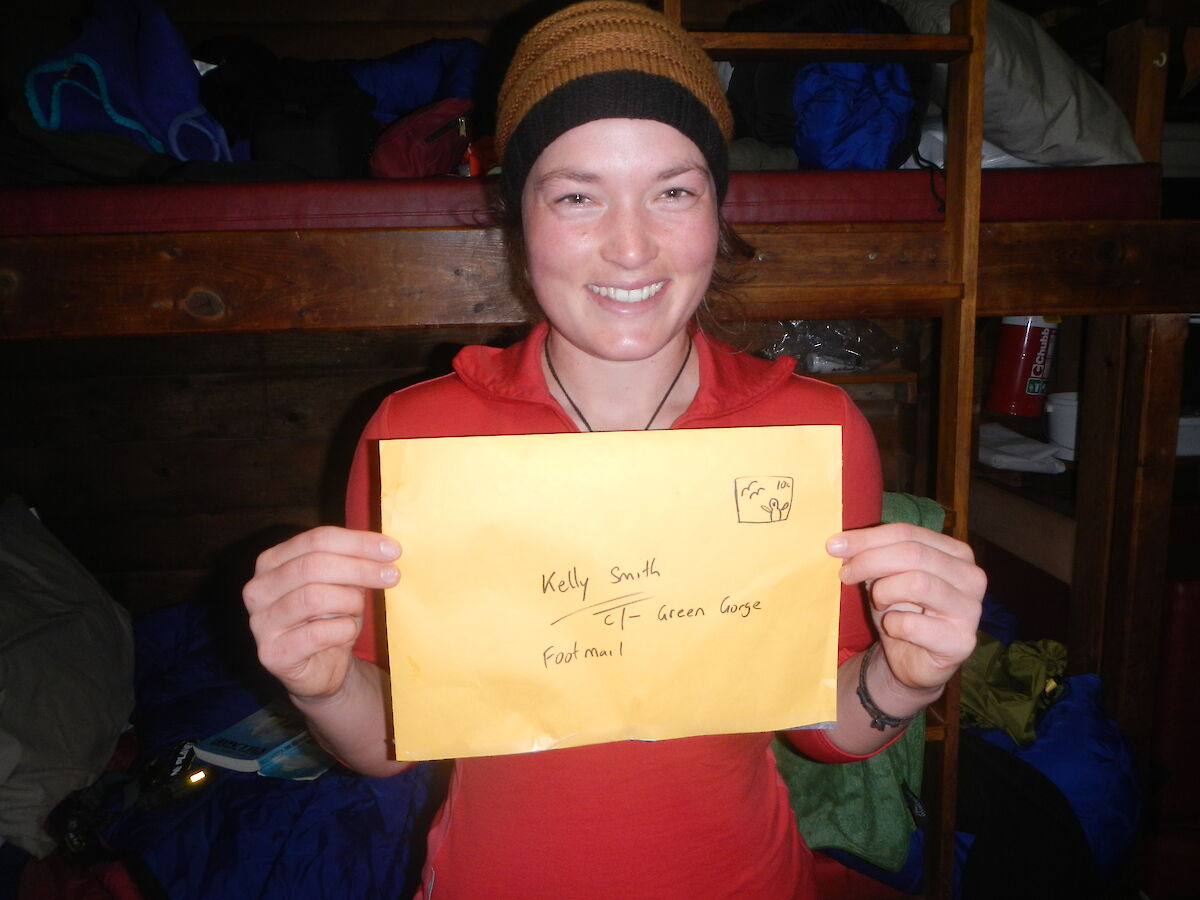 10c
Kelly Smith
c/- Green Gorge
Footmail
Chubb